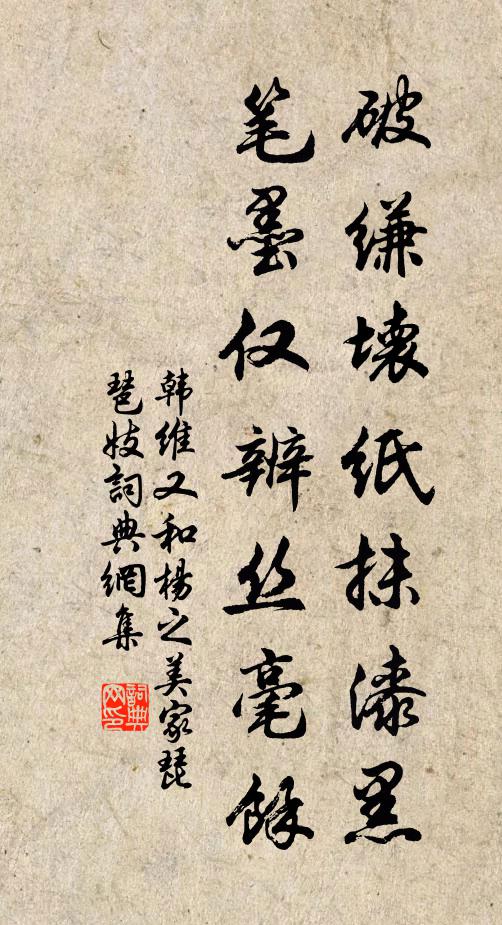 破缣壊纸抹漆黑
笔墨仅辨丝毫馀
韩维又和楊之美家琵
琶妓詞典網集
詞典
网印